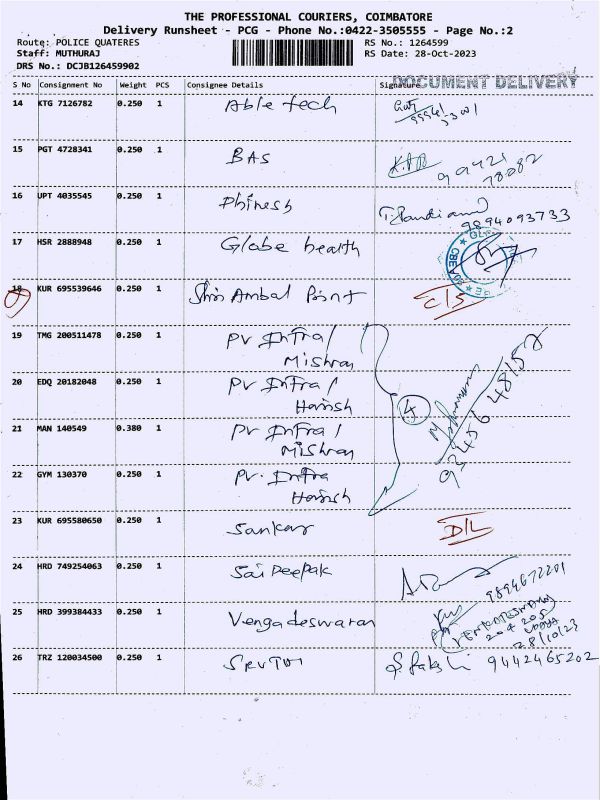 THE PROFESSIONAL COURIERS, COIMBATORE
Delivery Runsheet - PCG - Phone No.:0422-3505555 - Page No.:2
Route: POLICE QUATERES RS No.: 1264599
Staff: MUTHURAJ RS Date: 28-Oct-2023
DRS No.: DCJB126459902
DOCUMENT DELIVERY
S No Consignment No Weight PCS Consignee Details Signature
14 KTG 7126782 0.250 1 Able tech
15 PGT 4728341 0.250 1 BAS 99421
78082
16 UPT 4035545 0.250 1 Phinesh 9894093733
17 HSR 2888948 0.250 1 Globe health
18 KUR 695539646 0.250 1 Shri Ambal Point C/S
19 TMG 200511478 0.250 1 PV Infra/
Mishray
20 EDQ 20182048 0.250 1 PV Infra/
Harish
4
21 MAN 140549 0.380 1 PV Infra/
Mishray
93456 48152
22 GYM 130370 0.250 1 PV. Infra
Harish
23 KUR 695580650 0.250 1 Sankar D/L
24 HRD 749254063 0.250 1 Sai Deepak 9894672201
25 HRD 399384433 0.250 1 Vengadeswaran
28/10/23
26 TRZ 120034500 0.250 1 SRUTHI 9442465202